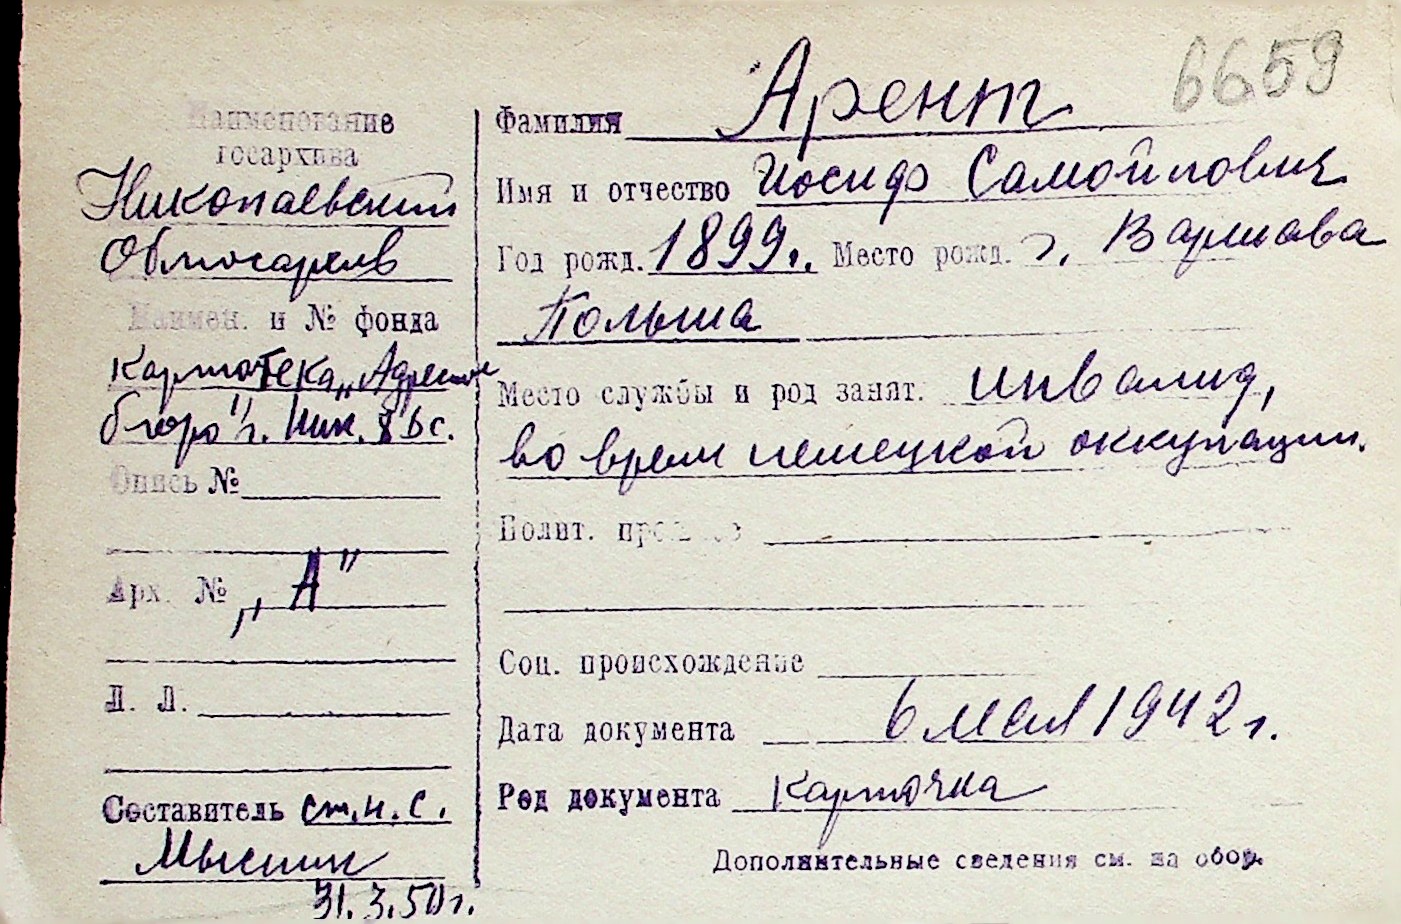 6659
Наименование
госархива
Николаевский
Облгосархив
Наимен. и № фонда
Картотека „Адресное
бюро" г. Ник.
Опись №
Арх. № „А"
Л. Л.
Составитель ст.н.с.
31.3.50 г.
Фамилия Арент
Имя и отчество Иосиф Самойлович
Год рожд. 1899 г. Место рожд. г. Варшава
Польша
Место службы и род занят. инвалид,
во время немецкой оккупации.
Полит.
Соц. происхождение
Дата документа 6 мая 1942 г.
Род документа Карточка
Дополнительные сведения см. на обор.